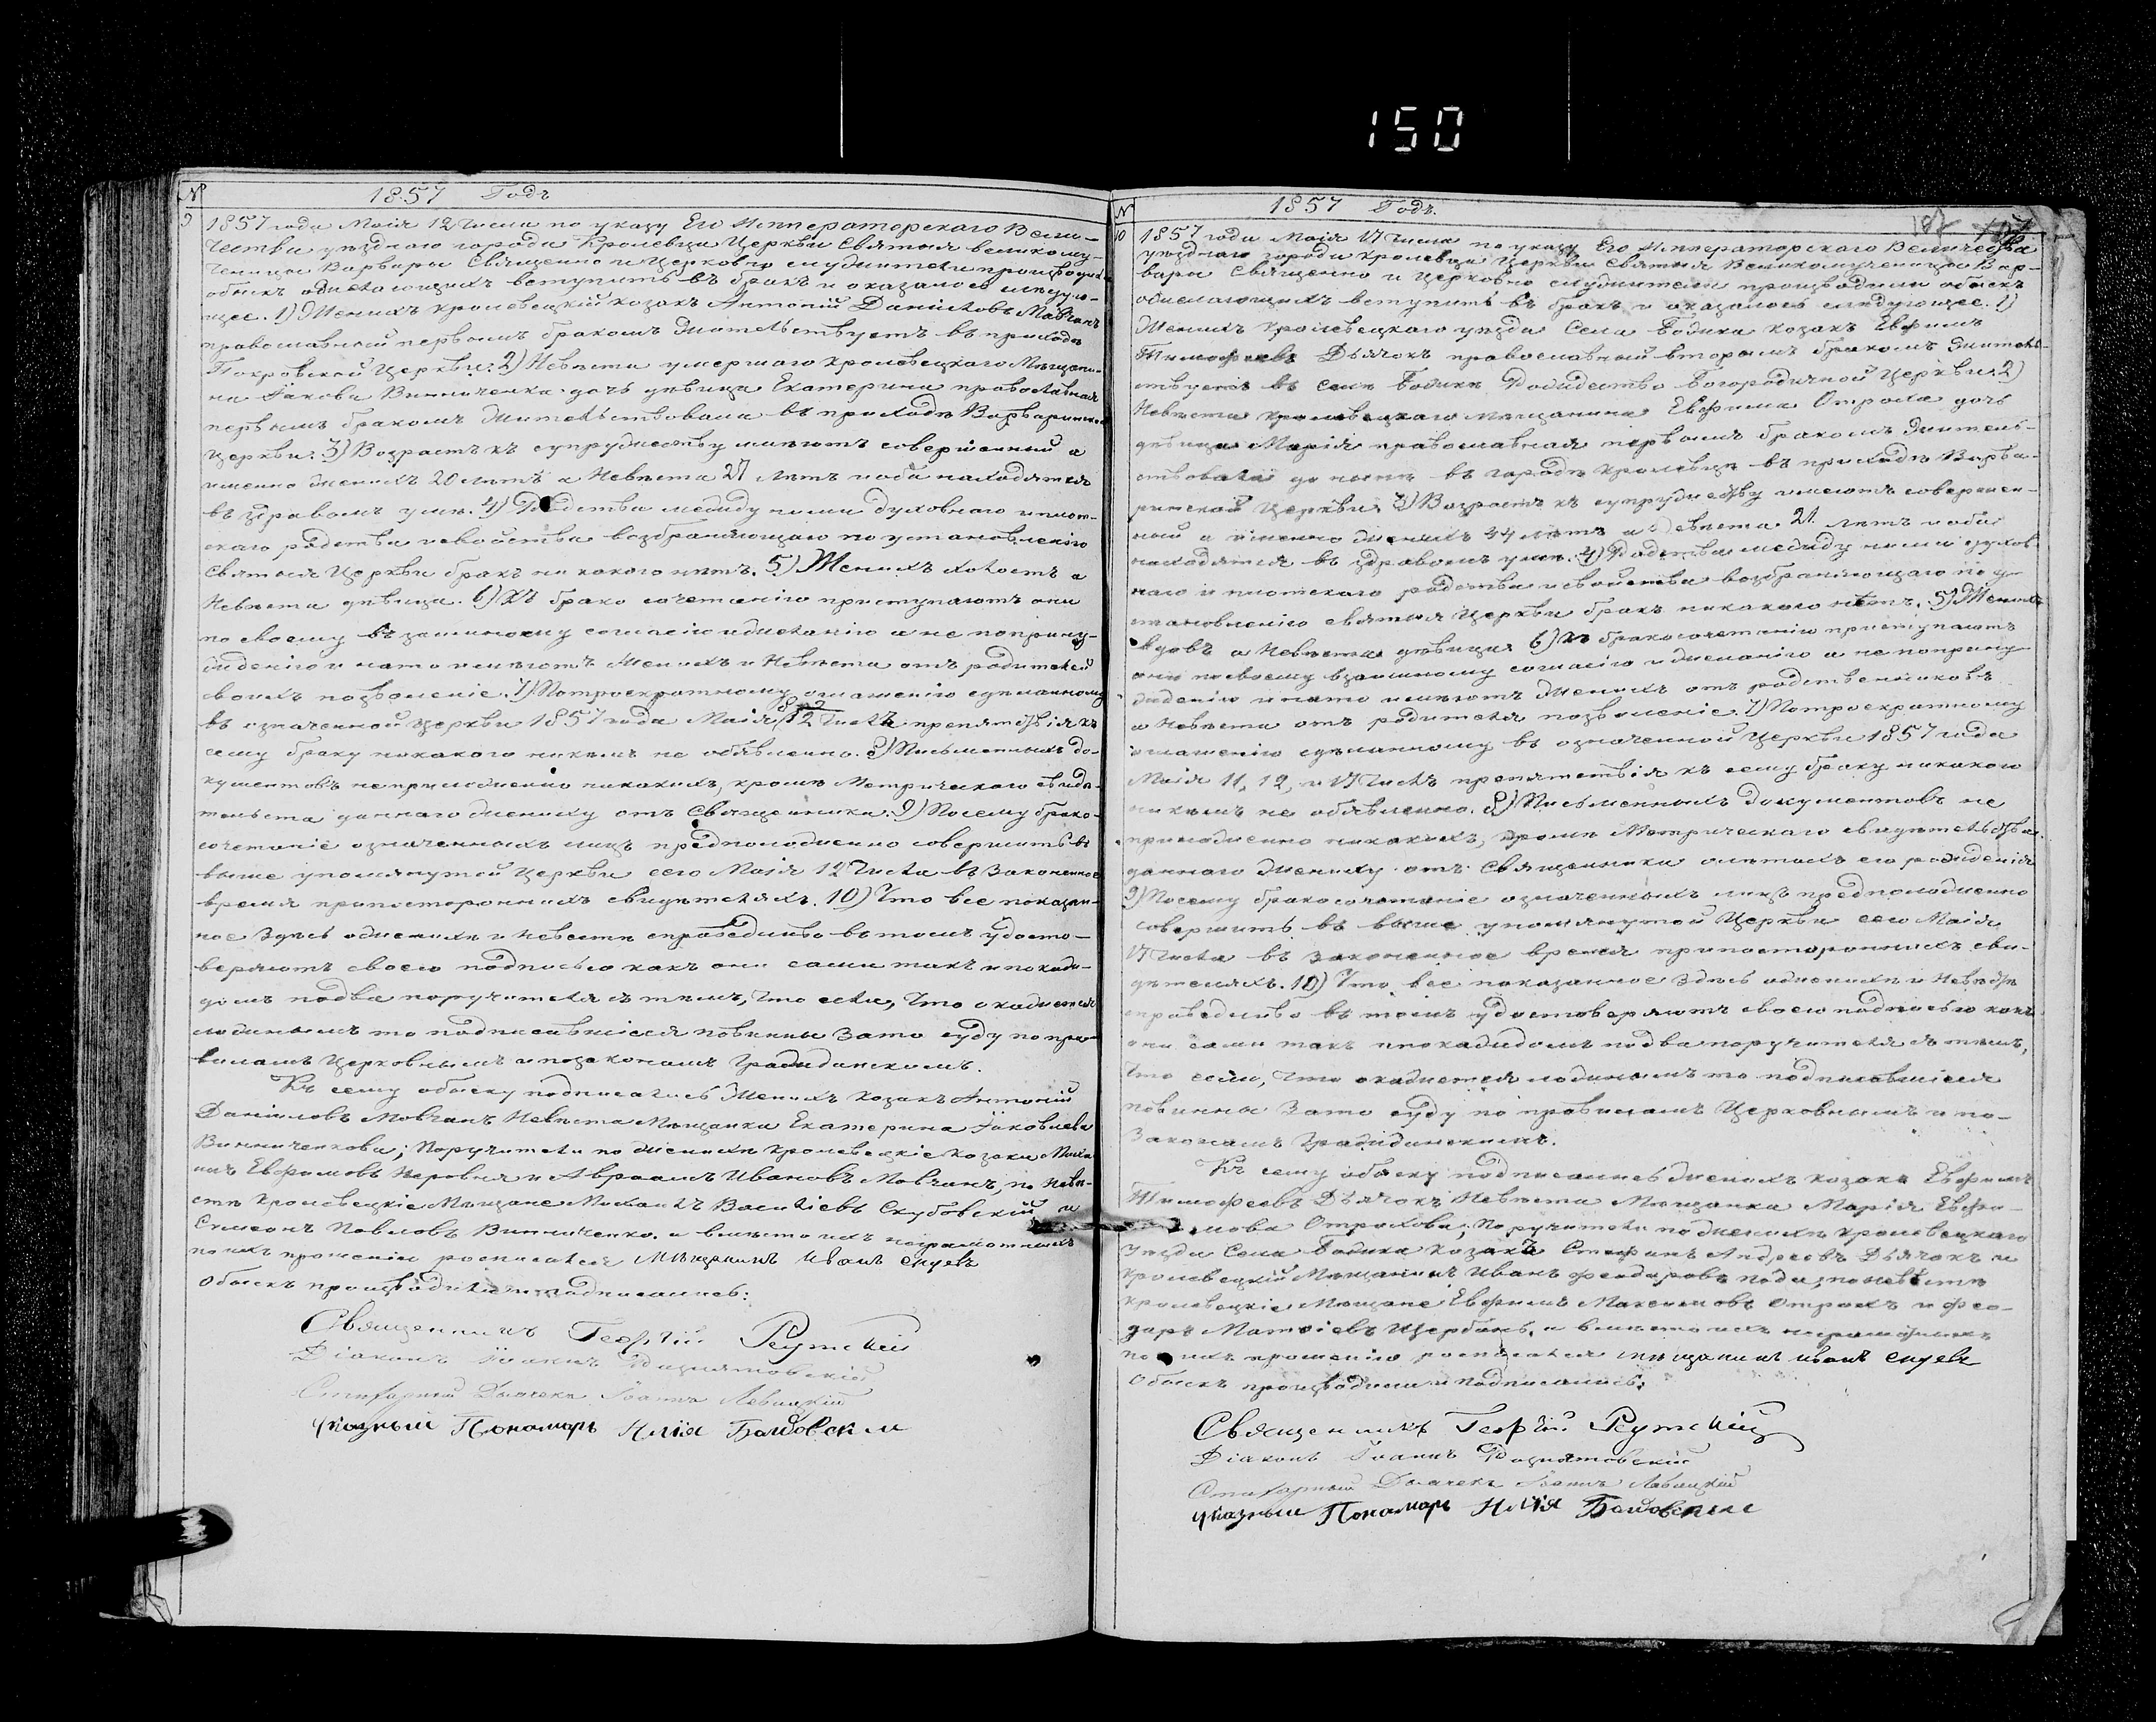 150
№ 1857 Годъ
9 1857 года Маія 12 числа по указу Его Императорскаго Вели-
чества уѣзднаго города Кролевца Церкви Святыя великому-
ченицы Варвары Священно и Церковно служители производили
обыскъ о желающихъ вступить въ бракъ и оказалось слѣдую-
щее. 1) Женихъ кролевецкій козакъ Антоній Даниловъ Мовчанъ
православный первымъ бракомъ жительствуетъ въ приходѣ
Покровской Церкви. 2) Невѣста умершаго кролевецкаго Мѣщани-
на Іакова Винниченка дочь дѣвица Екатерина православная
первымъ бракомъ жительствовала въ приходѣ Варваринской
Церкви. 3) Возрастъ къ супружеству имѣютъ совершенный а
именно женихъ 20 лѣтъ а Невѣста 21 лѣтъ и оба находятся
въ здравомъ умѣ. 4) Родства между ними духовнаго и плот-
скаго родства и свойства возбраняющаго по установленію
Святыя Церкви бракъ никакого нѣтъ. 5) Женихъ холостъ а
Невѣста дѣвица. 6) Къ брако сочетанію приступаютъ они
по своему взаимному согласію и желанію а не по прину-
жденію и на то имѣютъ Женихъ и Невѣста отъ родителей
своихъ позволеніе. 7) По троекратному оглашенію сдѣланному
въ означенной Церкви 1857 года Маія 12 числъ препятствія къ
сему браку никакого никѣмъ не объявлено. 8) Письменныхъ до-
кументовъ не приложено никакихъ, кромѣ Метрическаго свидѣ-
тельста даннаго жениху отъ Священника. 9) Посему брако-
сочетаніе означенныхъ лицъ предположено совершить въ
выше упомянутой Церкви сего Маія 12 числа въ Законенное
время при посторонныхъ свидѣтеляхъ. 10) Что все показан-
ное здѣсь о женихѣ и невестѣ справедливо въ томъ удосто-
веряютъ своею подписью какъ они сами такъ и по кажд-
домъ по два поручителя съ тѣмъ, что если, что окажется
ложнымъ то подписавшіеся повинны за то суду по пра-
виламъ Церковнымъ и по законамъ Гражданскимъ.
Къ сему обыску подписались Женихъ козакъ Антоній
Даниловъ Мовчанъ Невѣста Мѣщанка Екатерина Іаковлева
Винниченкова; Поручители по женихѣ кролевецкіе козаки Миха-
илъ Ефимовъ и Авраамъ Ивановъ Мовчанъ, по Невѣ-
стѣ Кролевецкіе Мѣщане Михаилъ Василіевъ Скубовскій и
Симеонъ Павловъ Винниченко. а вмѣсто ихъ неграмотныхъ
по ихъ прошенію росписался Мѣщанинъ Иванъ
Обыскъ производили и подписались:
Священникъ Георгій Рутскій
Діаконъ Іоаннъ
Стихарный Дьячекъ Іоаннъ Левицкій
Указный Пономарь Илія
№ 1857 Годъ.
107
10 1857 года Маія 17 числа по указу Его Императорскаго Величества
уѣзднаго города Кролевца Церкви Святыя Великомученицы Вар-
вары Священно и Церковно служители производили обыскъ
о желающихъ вступить въ бракъ и оказалось слѣдующее. 1)
Женихъ кролевецкаго уѣзда Села козакъ Ефимъ
Тимофеевъ Дьячокъ православный вторымъ бракомъ житель-
ствуетъ въ селѣ Рождество Богородичной Церкви. 2)
Невѣста кролевецкаго мѣщанина Евфима Отроха дочь
дѣвица Марія православная первымъ бракомъ житель-
ствовала до нынѣ въ городѣ Кролевцѣ въ приходѣ Варва-
ринской Церкви. 3) Возрастъ къ супружеству имеютъ совершен-
ный а именно женихъ 44 лѣтъ а Невѣста 21 лѣтъ и оба
находятся въ здравомъ умѣ. 4) Родства между ними духов-
наго и плотскаго родства и свойства возбраняющаго по у-
становленію святыя Церкви бракъ никакого нѣтъ. 5) Женихъ
вдовъ а Невѣста дѣвица 6) Къ бракосочетанію приступаютъ
они по своему взаимному согласію и желанію а не по прину-
жденію и на то имѣютъ женихъ отъ родственниковъ
а Невѣста отъ родителя позволеніе. 7) По троекратному
оглашенію сдѣланному въ означенной Церкви 1857 года
Маія 11, 12, и 17 числъ препятствія къ сему браку никакого
никѣмъ не объявлено. 8) Письменныхъ документовъ не
приложено никакихъ, кромѣ Метрическаго свидѣтельства
даннаго жениху отъ Священника о лѣтахъ его рожденія
9) Посему бракосочетаніе означенныхъ лицъ предположено
совершить въ выше упомянутой Церкви сего Маія
17 числа въ законенное время при посторонныхъ сви-
дѣтеляхъ. 10) Что все показанное здѣсь о женихѣ и Невѣстѣ
справедливо въ томъ удостоверяютъ своею подписью какъ
они сами такъ и по каждомъ по два поручителя съ тѣмъ,
что если, что окажется ложнымъ то подписавшіеся
повинны за то суду по правиламъ Церковнымъ и по-
Законамъ Гражданскимъ.
Къ сему обыску подписались женихъ козакъ Ефимъ
Тимофеевъ Дьячокъ Невѣста Мѣщанка Марія Евфи-
мова Отрохова; Поручители по женихѣ Кролевецкаго
уѣзда Села козакъ Стефанъ Андреевъ Дьячокъ и
Кролевецкій Мѣщанинъ Иванъ Феодоровъ по невѣстѣ
кролевецкіе Мѣщане Евфимъ Максимовъ Отрохъ и Фео-
доръ Матвіевъ Щербань. а вмѣсто ихъ неграмотныхъ
по ихъ прошенію росписался мѣщанинъ Иванъ
Обыскъ производили и подписались:
Священникъ Георгій Рутскій
Діаконъ Іоаннъ
Стихарный Дьячекъ Іоаннъ Левицкій
Указный Пономарь Илія